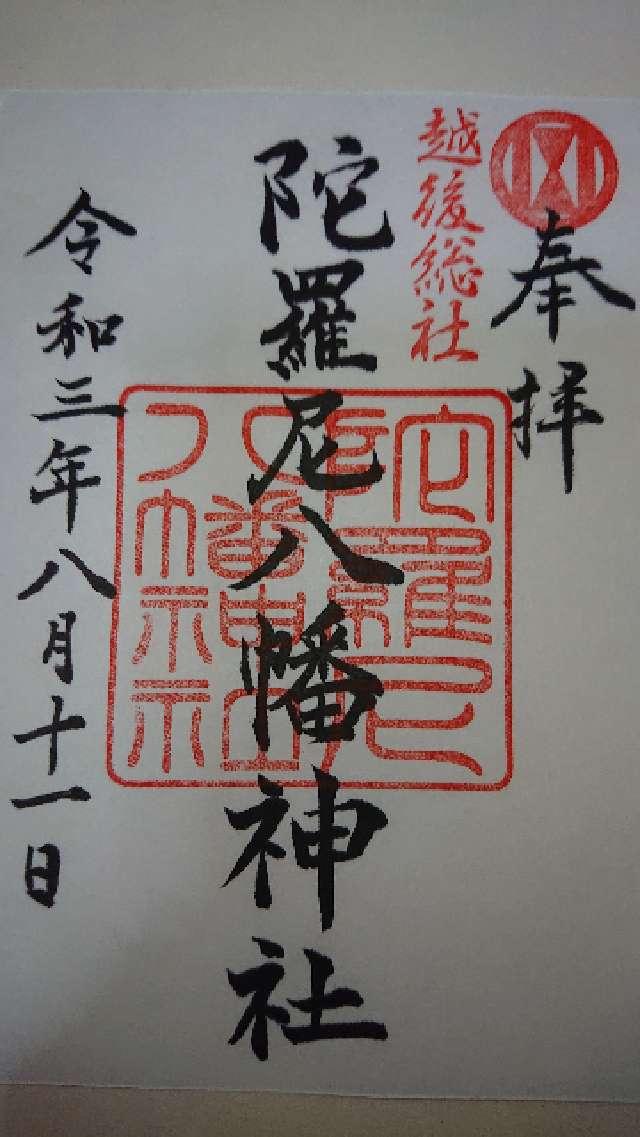 奉拝
越後総社
陀羅尼八幡神社
陀羅尼
八幡神社
令和三年八月十一日